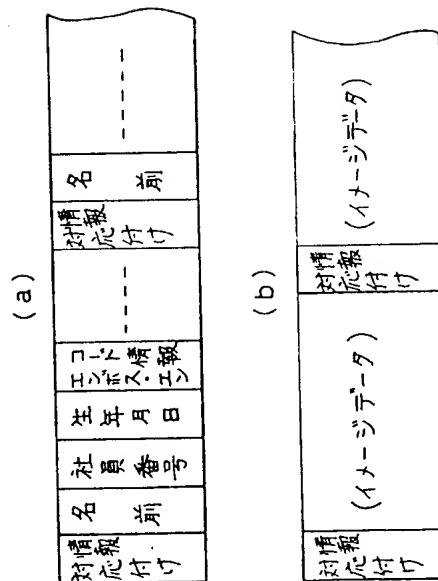 (a)
対応付け
情報
名前
社員番号
生年月日
エンボス・エン
コード情報
対応付け
情報
名前
(b)
対応付け
情報
(イメージデータ)
対応付け
情報
(イメージデータ)